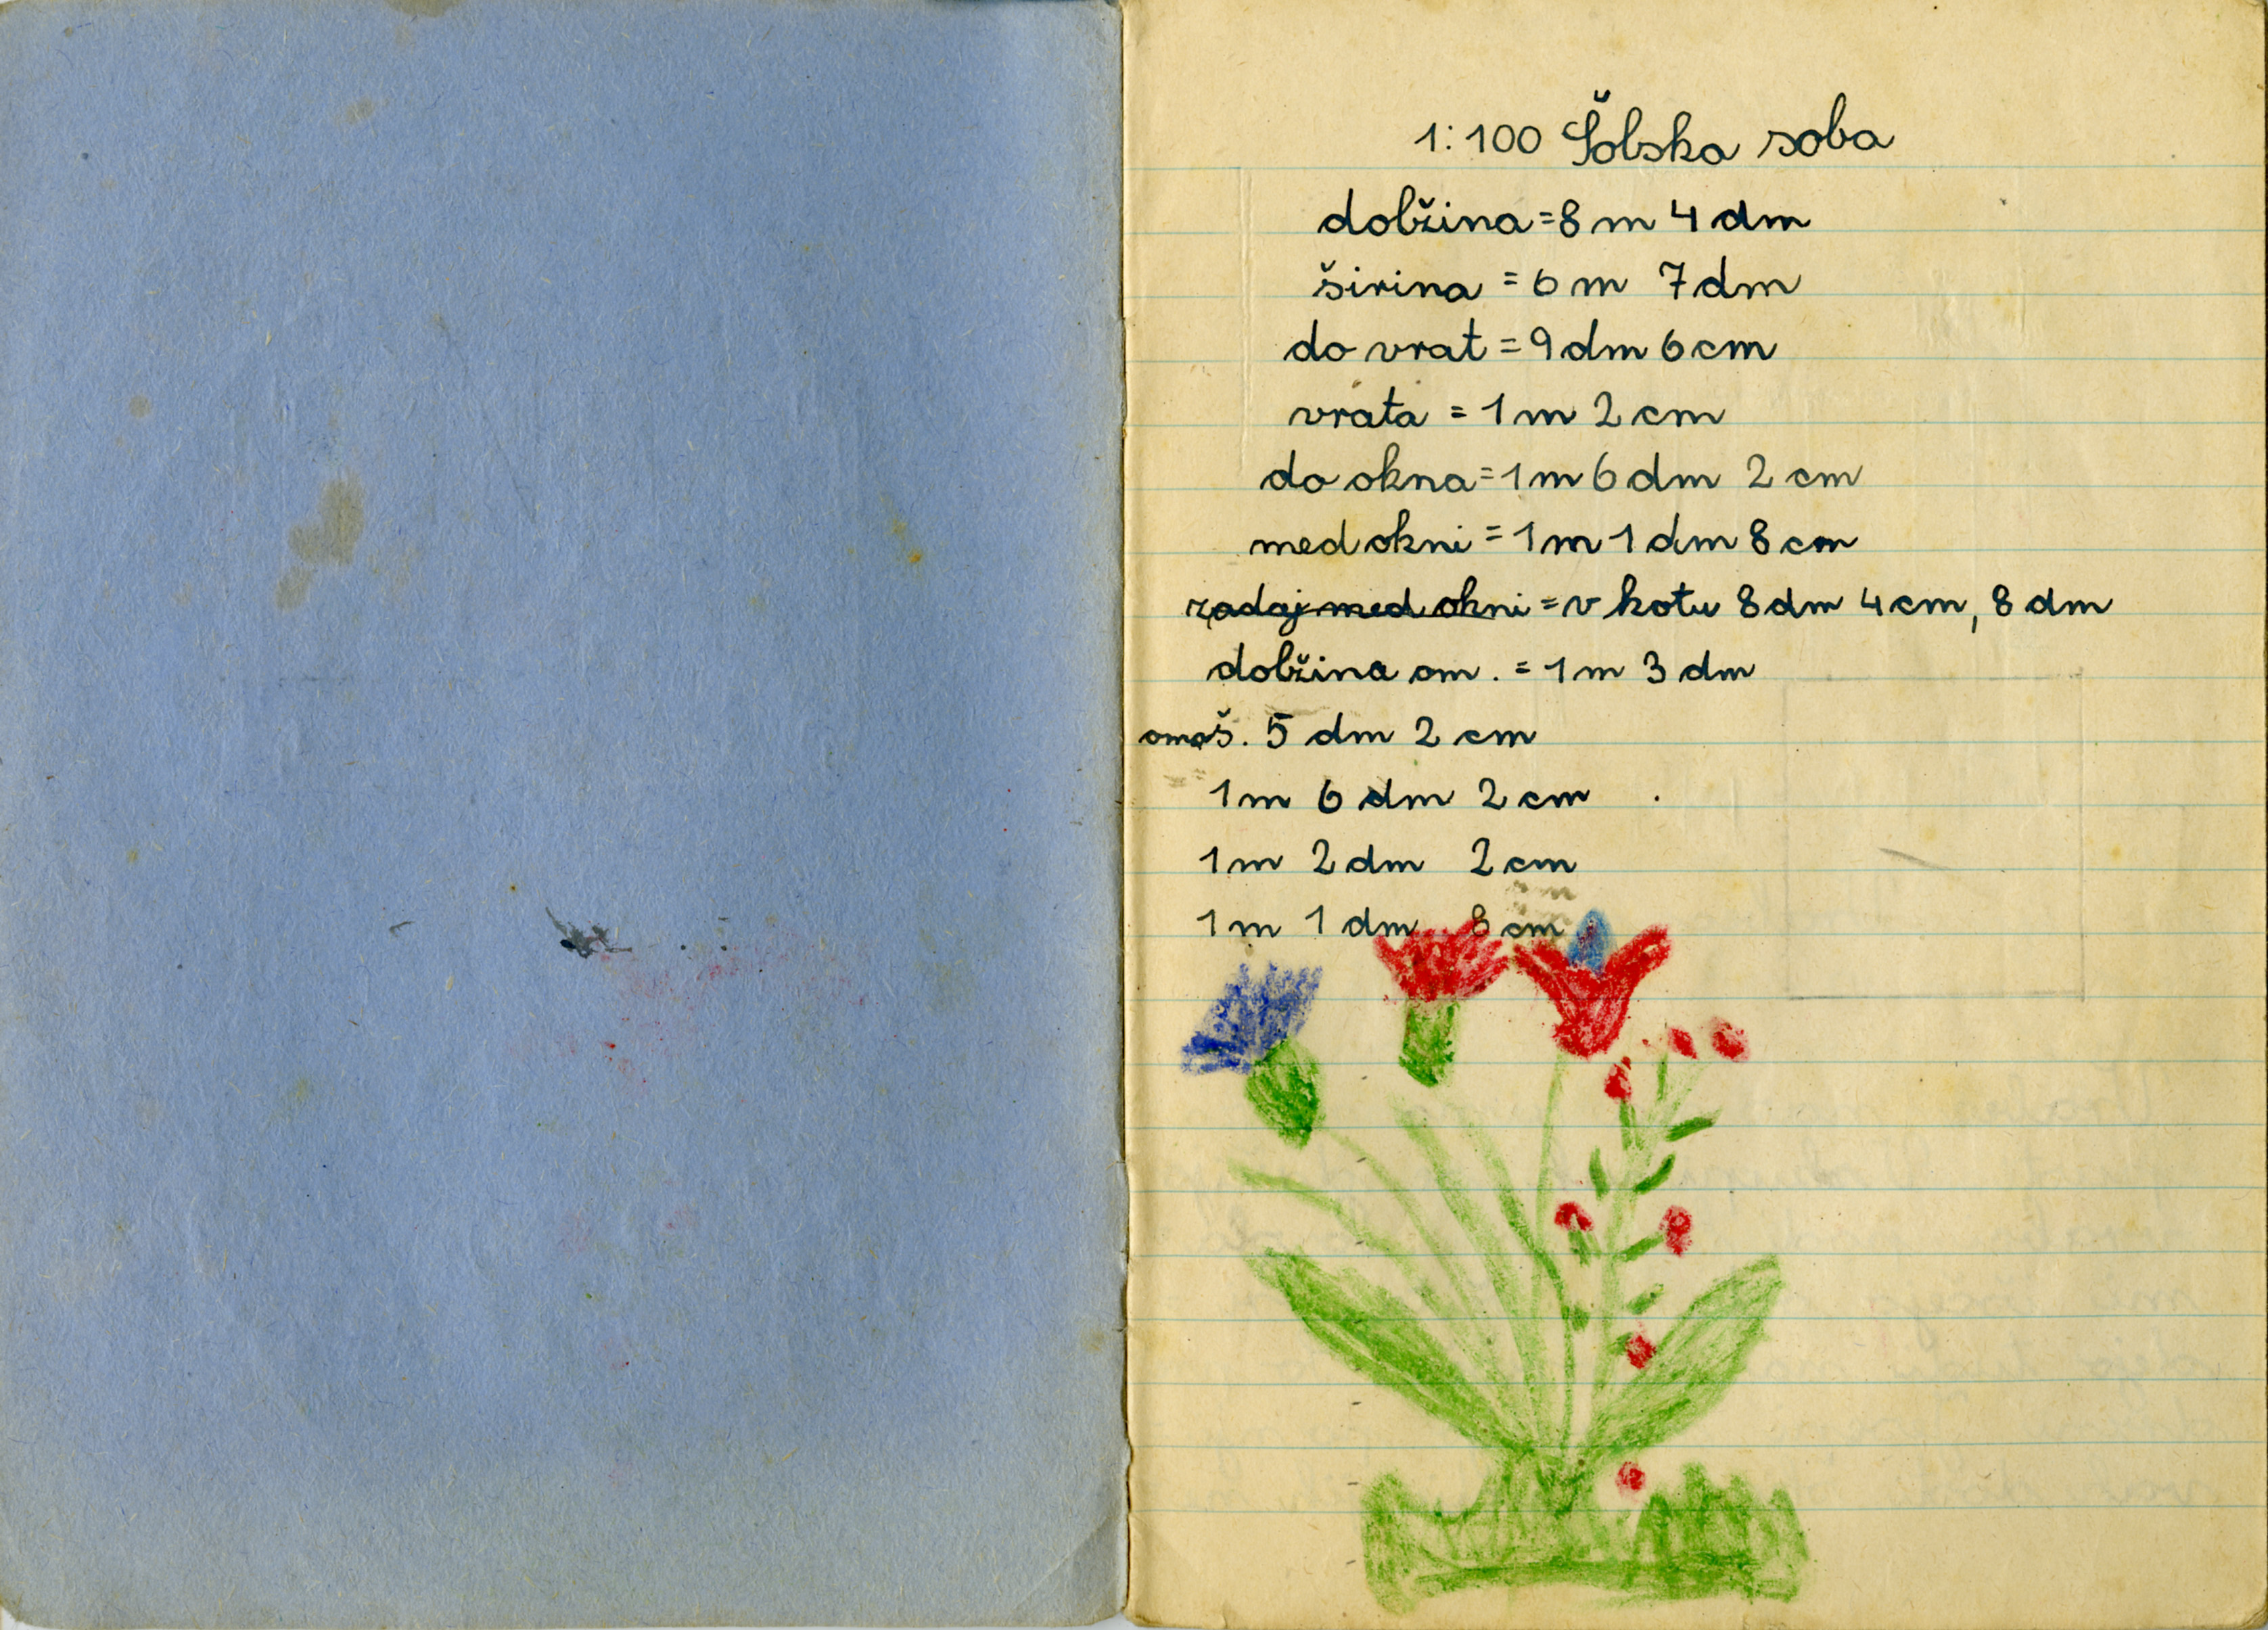 1:100 Šolska soba
dolžina=8 m 4 dm
širina = 6 m 7 dm
do vrat = 9 dm 6 cm
vrata = 1 m 2 cm
do okna=1 m 6 dm 2 cm
med okni = 1 m 1 dm 8 cm
zadaj med okni = v kotu 8 dm 4 cm, 8 dm
dolžina om. = 1 m 3 dm
omaš. 5 dm 2 cm
1 m 6 dm 2 cm
1 m 2 dm 2 cm
1 m 1 dm 8 cm